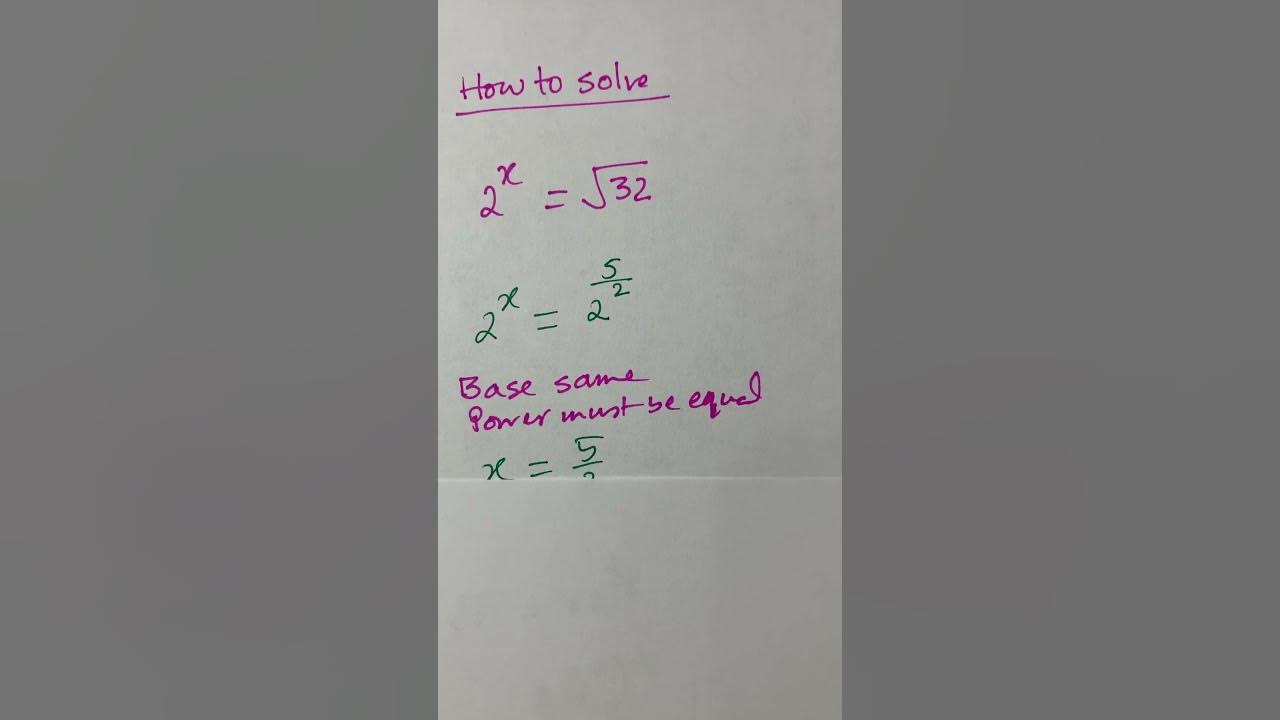 How to solve
2^x = √32
2^(5/2)
2^x =
Base same
Power must be equal
x = 5/